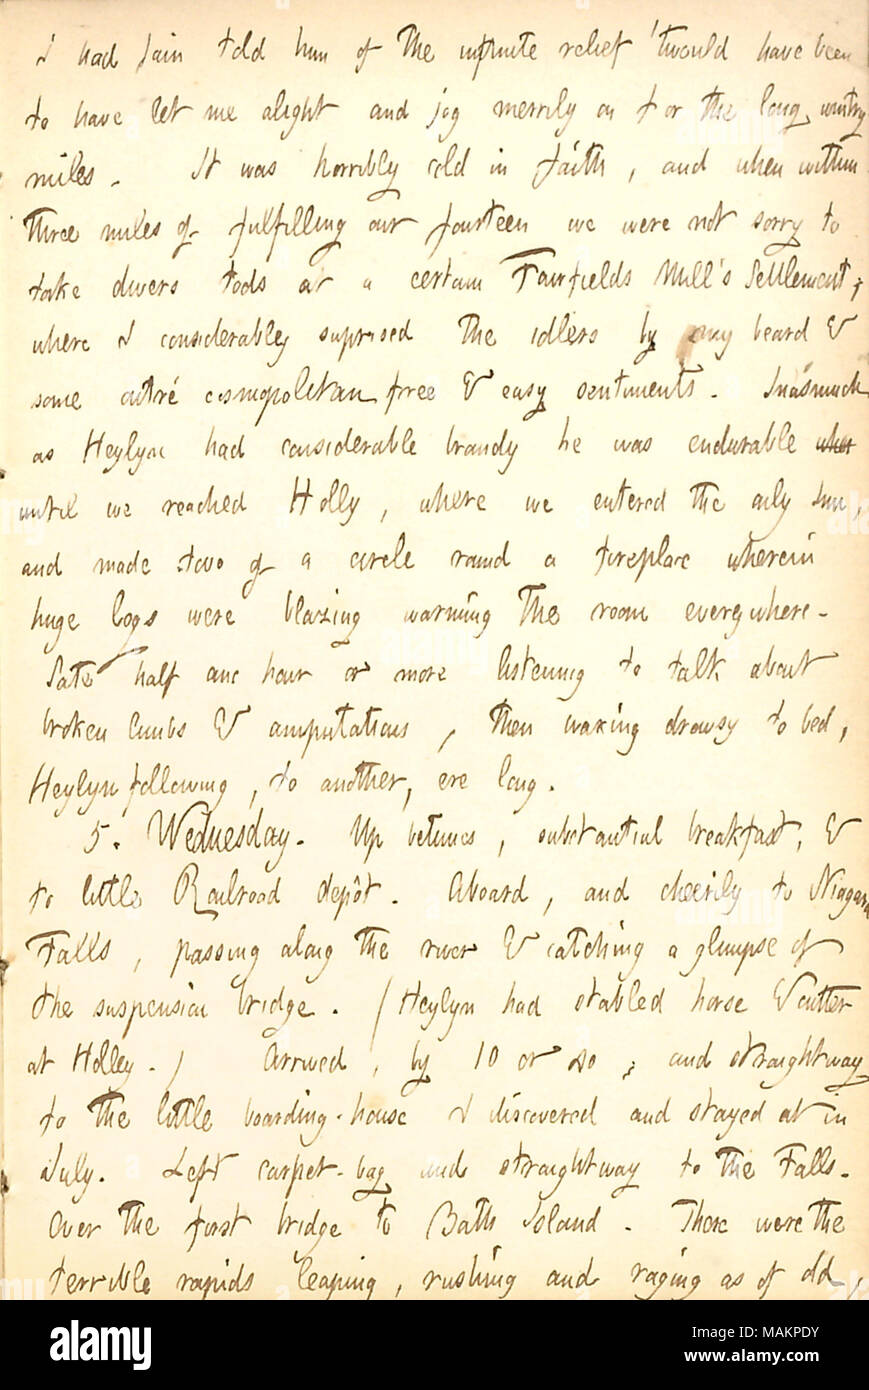 I had fain told him of the infinite relief 'twould have been
to have let me alight and jog merrily on for the long, wintry
miles. It was horribly cold in faith, and when within
three miles of fulfilling our fourteen we were not sorry to
take divers tods at a certain Fairfields Mill's Settlement;
where I considerably suprised the idlers by my beard &
some outré cosmopolitan free & easy sentiments. Inasmuch
as Heylyn had considerable brandy he was endurable
until we reached Holly, where we entered the only Inn,
and made two of a circle round a fireplace wherein
huge logs were blazing warming the room everywhere.
Sate half anc hour or more listening to talk about
broken limbs & amputations, then waxing drowsy to bed,
Heylyn following, to another, ere long.
5. Wednesday. Up betimes, substantial breakfast, &
to little Railroad depôt. Aboard, and cheerily to Niagara
Falls, passing along the river & catching a glimpse of
the suspension bridge. (Heylyn had stabled horse & cutter
at Holley.) Arrived, by 10 or so; and straightway
to the little boarding-house I discovered and stayed at in
July. Left carpet-bag and straightway to the Falls.
Over the first bridge to Bath Island. There were the
terrible rapids leaping, rushing and raging as of old,
alamy
Image ID: MAKPDY
www.alamy.com